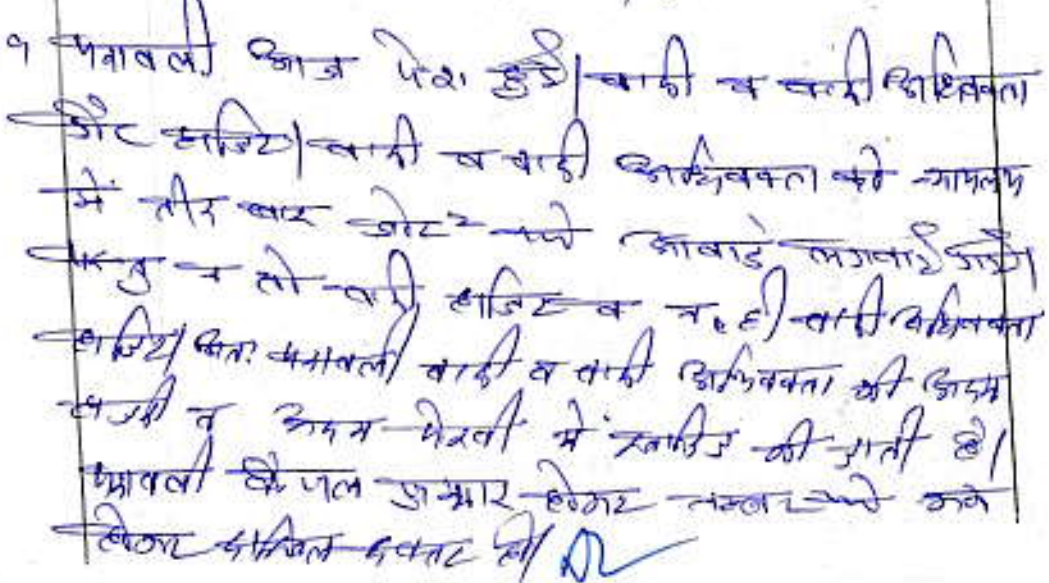 १ पत्रावली आज पेश हुई। वादी व वादी अधिवक्ता
गैर हाजिर। वादी व वादी अधिवक्ता को न्यायालय
में तीन बार जोर २ से आवाजे लगवाई गई।
परन्तु न तो वादी हाजिर व न ही वादी अधिवक्ता
हाजिर। अतः पत्रावली वादी व वादी अधिवक्ता की अदम
हाजरी व अदम पेरवी में खारिज की जाती है।
पत्रावली फैसल शुमार होकर नम्बर से कम
होकर दाखिल दफ्तर हो।